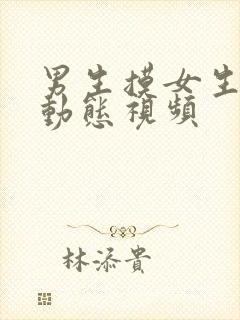 男生摸女生
動態視頻
林添貴